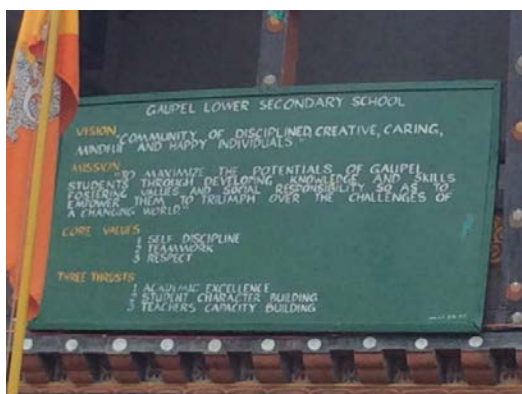 GAUPEL LOWER SECONDARY SCHOOL
VISION
"COMMUNITY OF DISCIPLINED, CREATIVE, CARING,
MINDFUL AND HAPPY INDIVIDUALS"
MISSION
"TO MAXIMIZE THE POTENTIALS OF GAUPEL
STUDENTS THROUGH DEVELOPING KNOWLEDGE AND SKILLS
FOSTERING VALUES AND SOCIAL RESPONSIBILITY SO AS TO
EMPOWER THEM TO TRIUMPH OVER THE CHALLENGES OF
A CHANGING WORLD."
CORE VALUES
1 SELF DISCIPLINE
2 TEAMWORK
3 RESPECT
THREE THRUSTS
1 ACADEMIC EXCELLENCE
2 STUDENT CHARACTER BUILDING
3 TEACHERS CAPACITY BUILDING